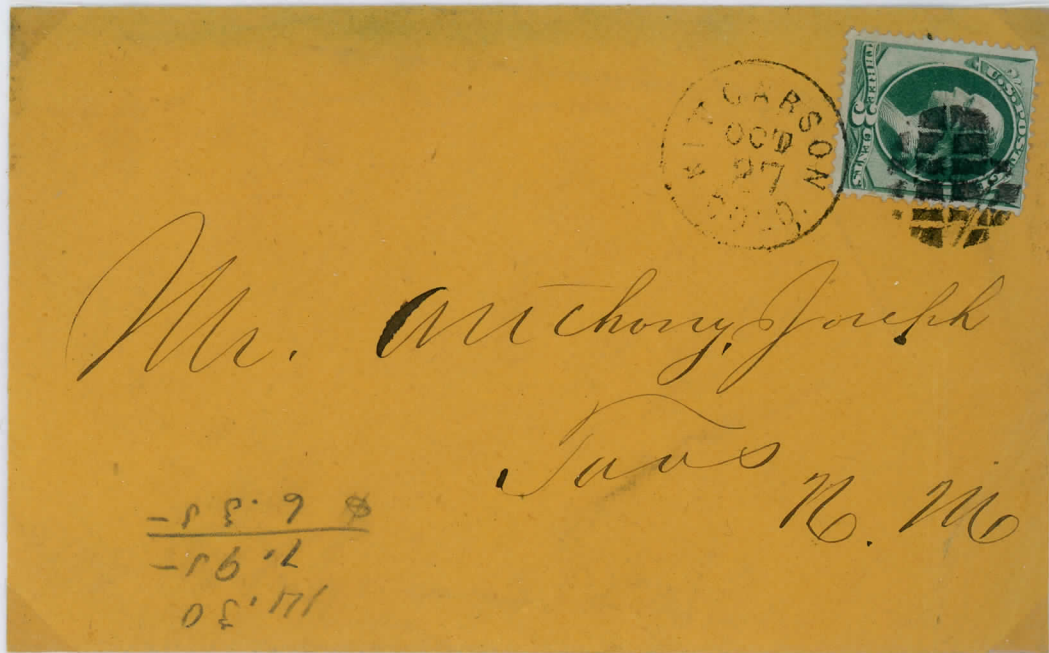 KIT CARSON
OCT
27
COLO.
U.S. POSTAGE
THREE 3 CENTS
Mr. Anthony Joseph
Taos
N. M.
14.30
7.95
$ 6.35